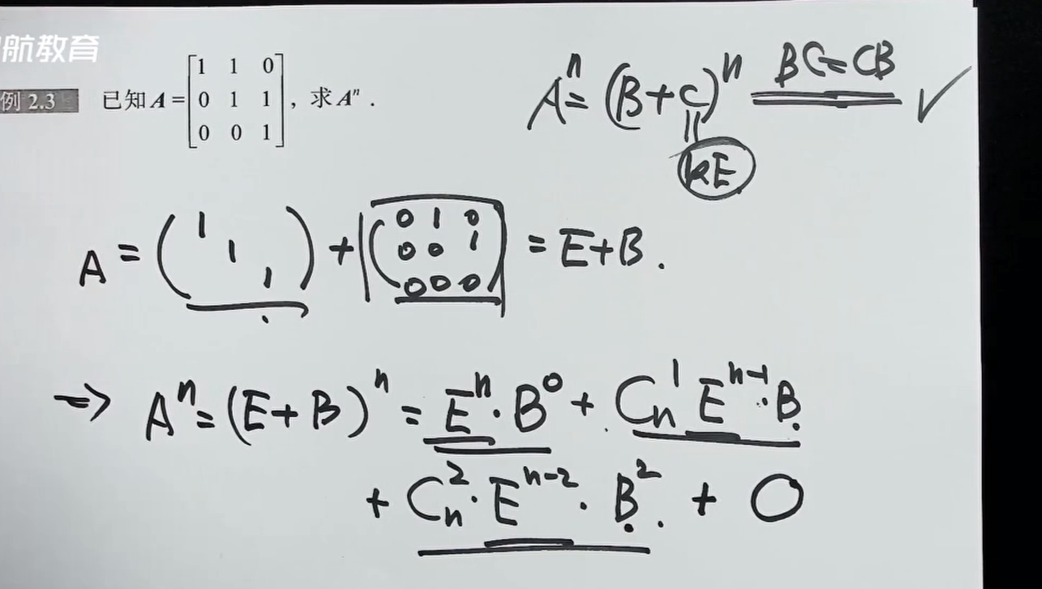 航教育
例 2.3 已知 A = [1 1 0; 0 1 1; 0 0 1], 求 Aⁿ.
Aⁿ = (B+C)ⁿ BC=CB ✓
‖
kE
A = (1 1 1) + (0 1 0; 0 0 1; 0 0 0) = E+B.
⇒ Aⁿ = (E+B)ⁿ = Eⁿ·B⁰ + Cₙ¹ Eⁿ⁻¹·B
+ Cₙ²·Eⁿ⁻²·B². + O